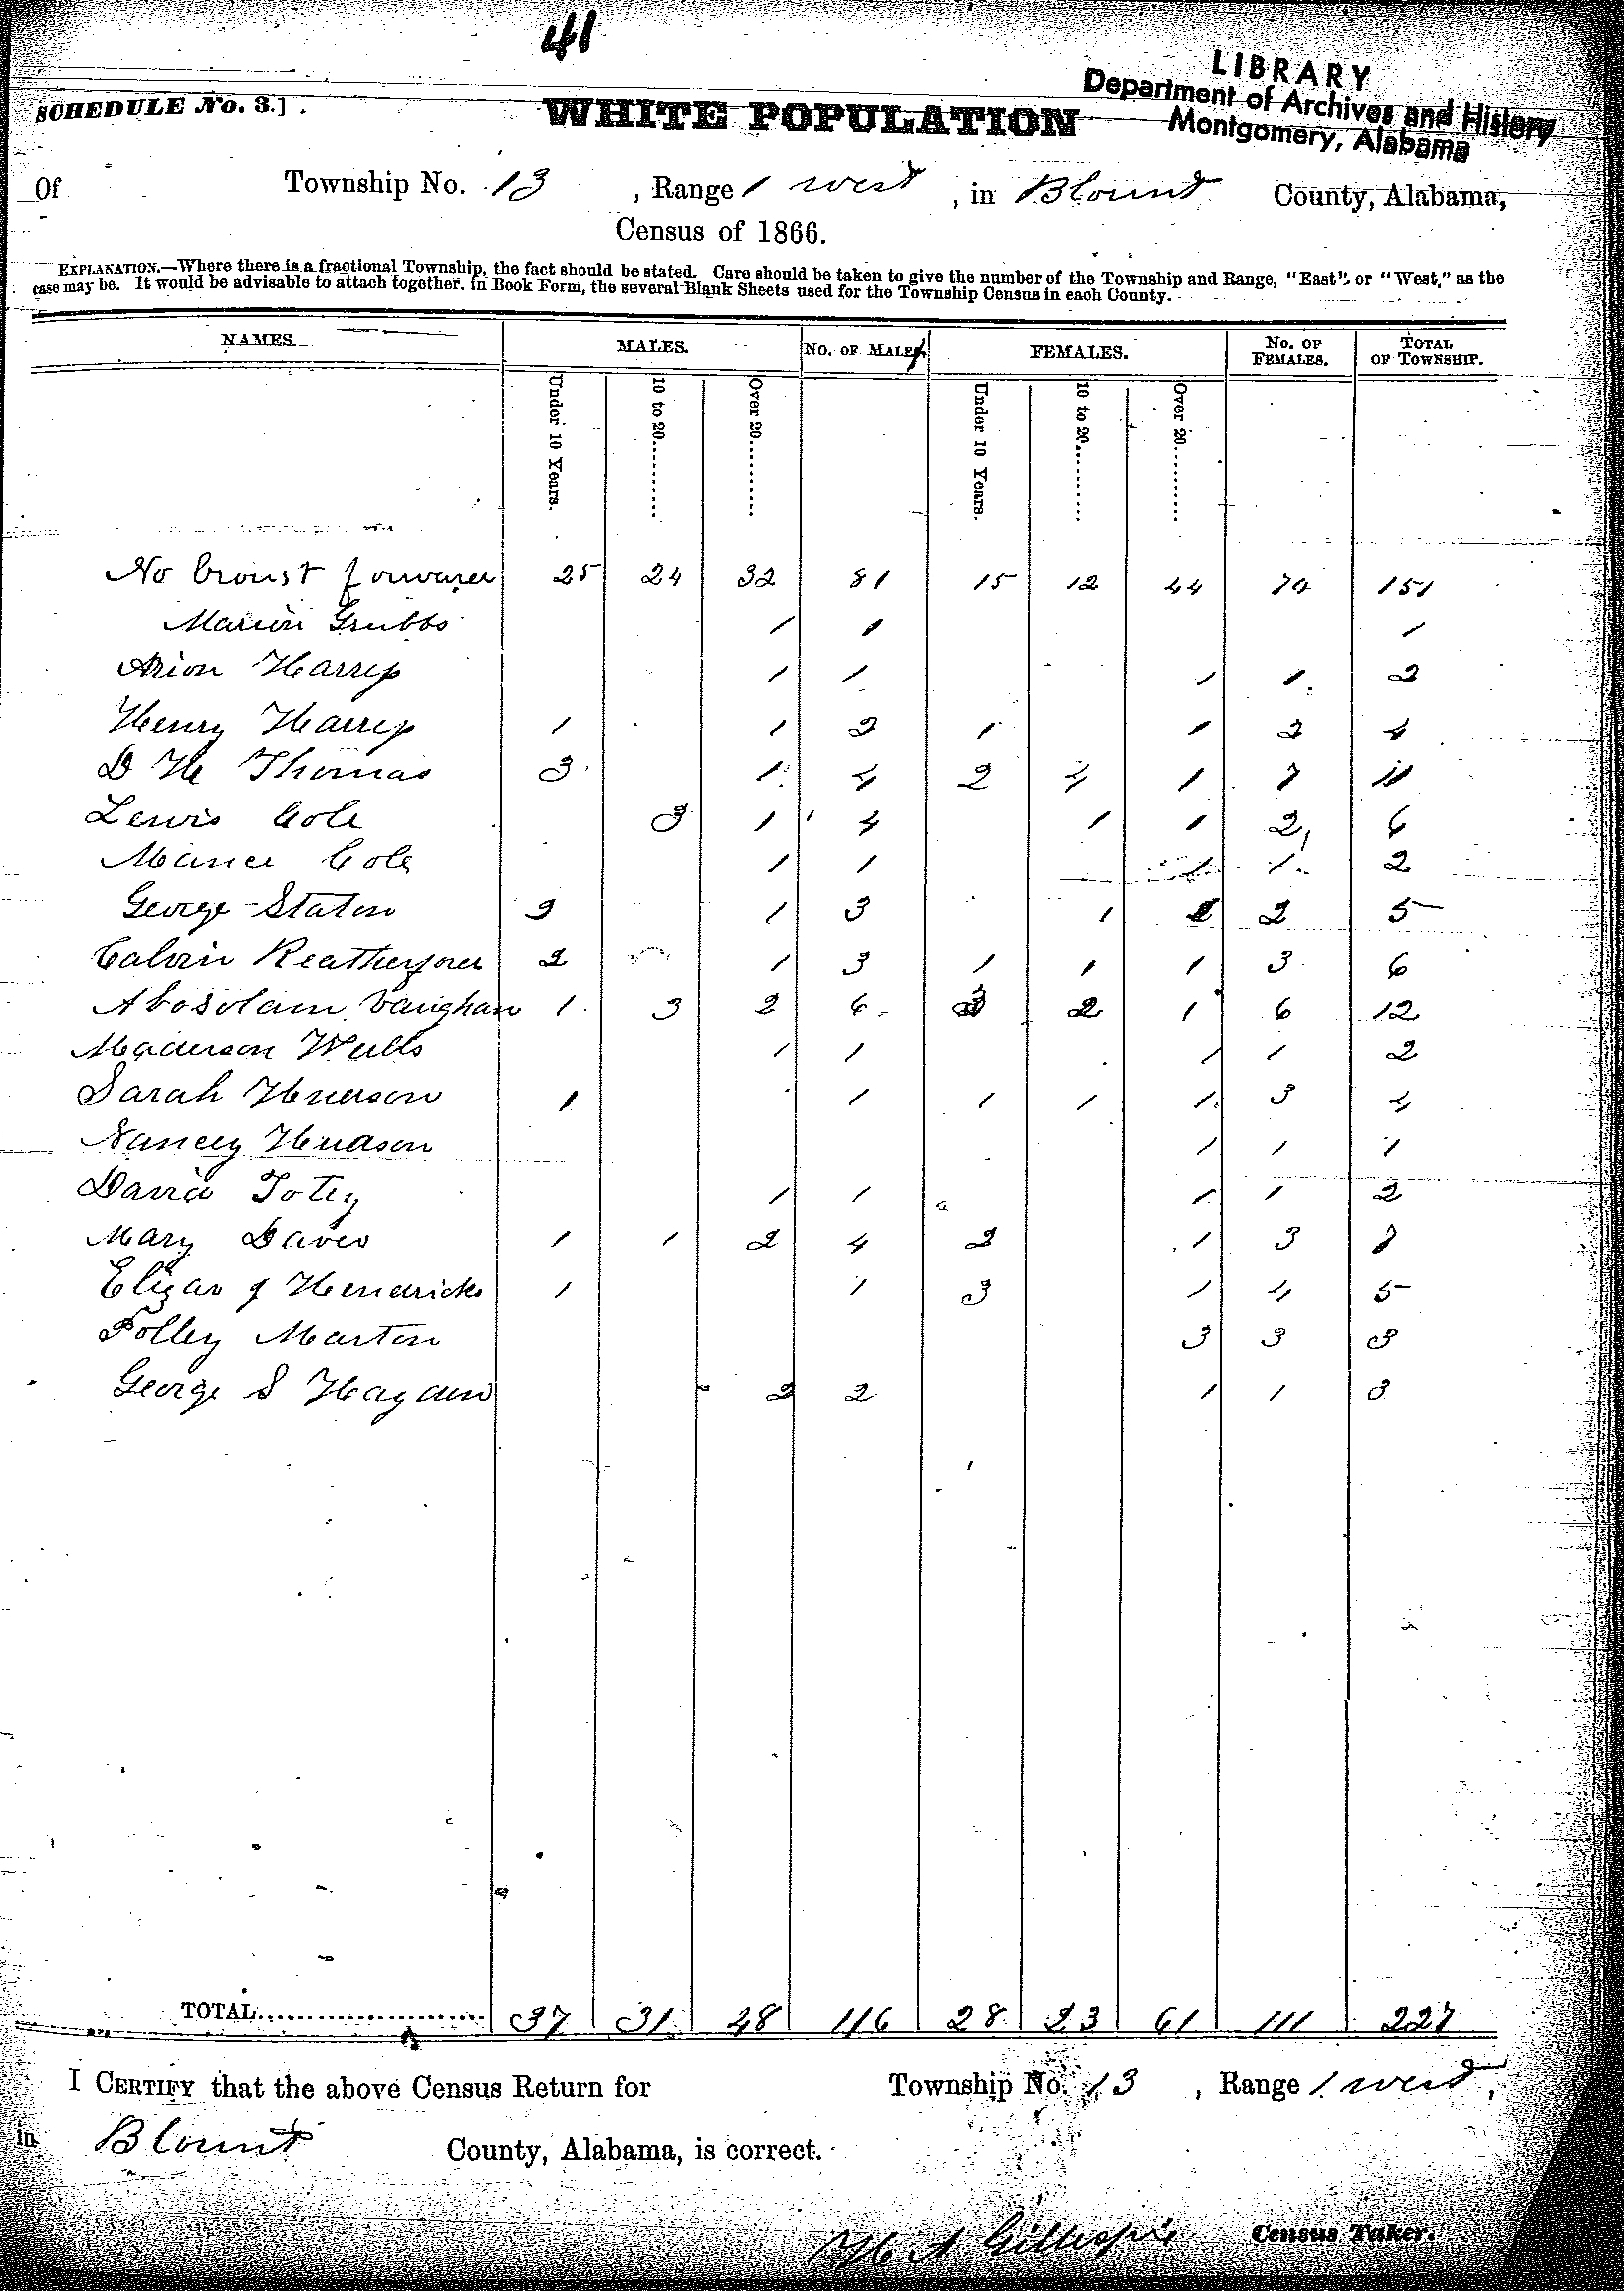 41
LIBRARY
Department of Archives and History
Montgomery, Alabama
SCHEDULE No. 3.]
WHITE POPULATION
Of Township No. 13, Range 1 west, in Blount County, Alabama,
Census of 1866.
EXPLANATION.—Where there is a fractional Township, the fact should be stated. Care should be taken to give the number of the Township and Range, "East", or "West," as the
case may be. It would be advisable to attach together, in Book Form, the several Blank Sheets used for the Township Census in each County.
NAMES. MALES. No. of Males. FEMALES. No. of Females. Total of Township.
Under 10 Years. 10 to 20 Over 20 Under 10 Years. 10 to 20 Over 20
No 25 24 32 81 15 12 44 70 151
Marion Grubbs 1 1 1
Harris 1 1 1 1 2
Henry Harris 1 1 2 1 1 2 4
D H Thomas 3 1 4 2 4 1 7 11
Lewis Cole 3 1 4 1 1 2 6
Cole 1 1 1 1 2
George Staton 2 1 3 1 1 2 5
Calvin 2 1 3 1 1 1 3 6
Abosolam Vaughan 1 3 2 6 3 2 1 6 12
Maderson Wells 1 1 1 1 2
Sarah Huderson 1 1 1 1 1 3 4
Nancy Hudson 1 1 1
David 1 1 1 1 2
Mary Daves 1 1 2 4 2 1 3 7
J Hendricks 1 1 3 1 4 5
Polley Marton 3 3 3
George S Hayden 2 2 1 1 3
TOTAL 37 31 48 116 28 23 61 111 227
I CERTIFY that the above Census Return for Township No. 13, Range 1 west,
in Blount County, Alabama, is correct.
H A Gillespie Census Taker.